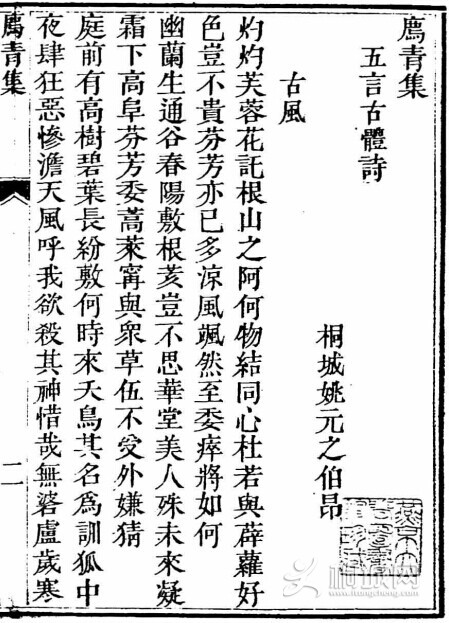 廌青集
五言古體詩
桐城姚元之伯昂
古風
灼灼芙蓉花託根山之阿何物結同心杜若與薜蘿好
色豈不貴芬芳亦已多涼風颯然至委瘁將如何
幽蘭生通谷春陽敷根荄豈不思華堂美人殊未來凝
霜下高阜芬芳委蒿萊寗與眾草伍不受外嫌猜
庭前有高樹碧葉長紛敷何時來夭鳥其名為訓狐中
夜肆狂惡慘澹天風呼我欲殺其神惜哉無硰盧歲寒
廌青集
二